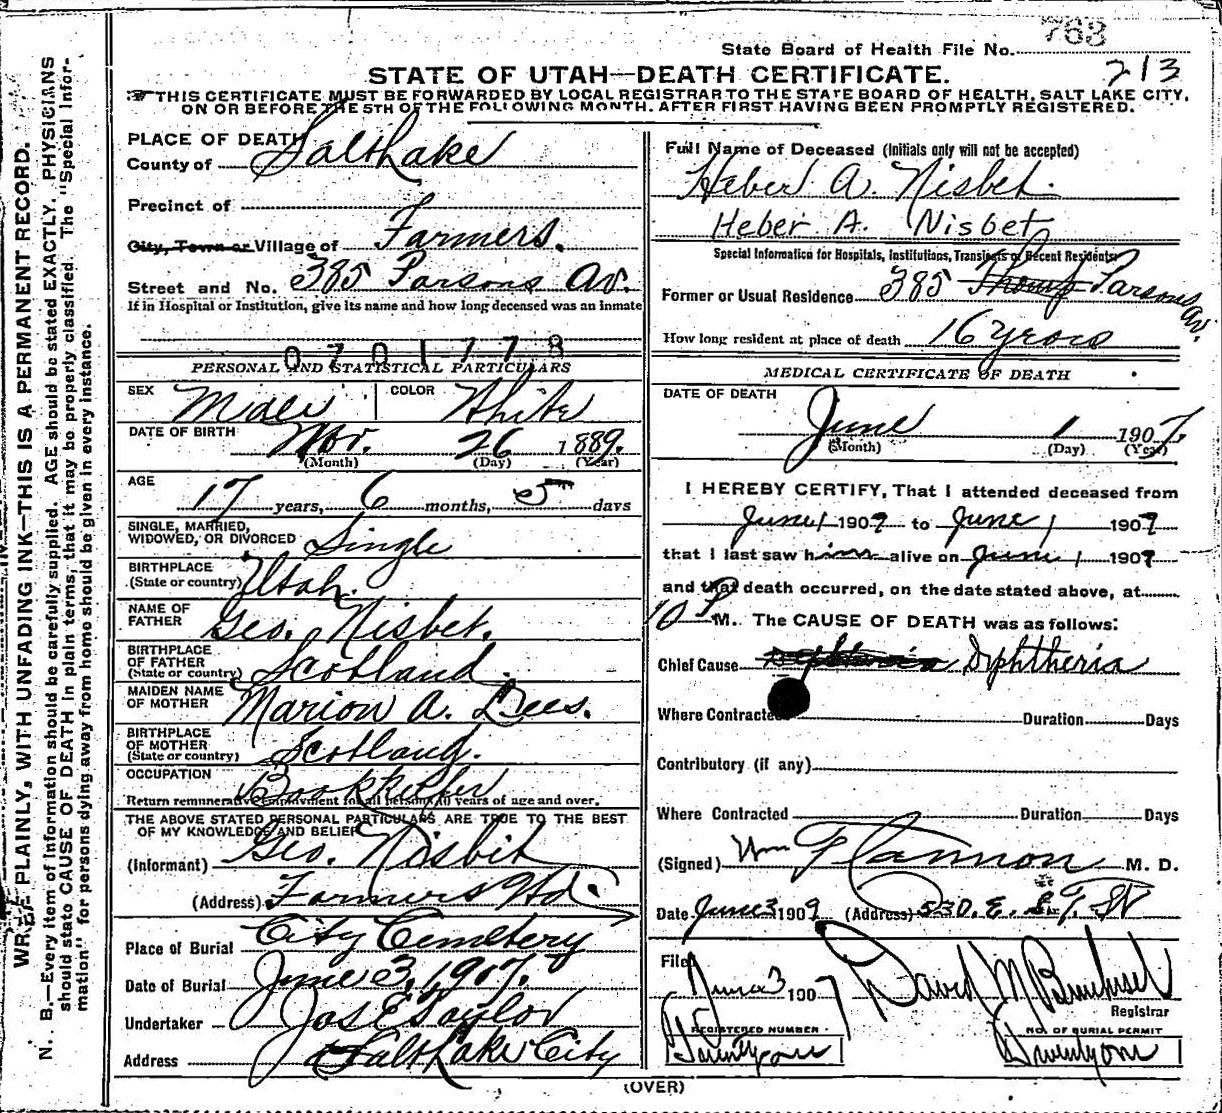 763
State Board of Health File No.
213
STATE OF UTAH—DEATH CERTIFICATE.
THIS CERTIFICATE MUST BE FORWARDED BY LOCAL REGISTRAR TO THE STATE BOARD OF HEALTH, SALT LAKE CITY,
ON OR BEFORE THE 5TH OF THE FOLLOWING MONTH. AFTER FIRST HAVING BEEN PROMPTLY REGISTERED.
WRITE PLAINLY, WITH UNFADING INK—THIS IS A PERMANENT RECORD.
N. B.—Every item of information should be carefully supplied. AGE should be stated EXACTLY. PHYSICIANS
should state CAUSE OF DEATH in plain terms, that it may be properly classified. The "Special Infor-
mation" for persons dying away from home should be given in every instance.
PLACE OF DEATH
County of Salt Lake
Precinct of
City, Town or Village of Farmers.
Street and No. 385 Parsons Av.
If in Hospital or Institution, give its name and how long deceased was an inmate
0701778
PERSONAL AND STATISTICAL PARTICULARS
SEX Male COLOR White
DATE OF BIRTH Nov. 26 1889.
(Month) (Day) (Year)
AGE 17 years, 6 months, 5 days
SINGLE, MARRIED,
WIDOWED, OR DIVORCED Single
BIRTHPLACE
(State or country) Utah.
NAME OF
FATHER Geo. Nisbet.
BIRTHPLACE
OF FATHER
(State or country) Scotland.
MAIDEN NAME
OF MOTHER Marion A. Lees.
BIRTHPLACE
OF MOTHER
(State or country) Scotland.
OCCUPATION Bookkeeper
Return remunerative employment for all persons 10 years of age and over.
THE ABOVE STATED PERSONAL PARTICULARS ARE TRUE TO THE BEST
OF MY KNOWLEDGE AND BELIEF
(Informant) Geo. Nisbit
(Address) Farmers Wd.
Place of Burial City Cemetery
Date of Burial June 3, 1907.
Undertaker Jos E Taylor
Address Salt Lake City
Full Name of Deceased (Initials only will not be accepted)
Heber A. Nisbet.
Heber A. Nisbet
Special Information for Hospitals, Institutions, Transients or Recent Residents
Former or Usual Residence 385 Parsons Av.
How long resident at place of death 16 years
MEDICAL CERTIFICATE OF DEATH
DATE OF DEATH
June 1 1907.
(Month) (Day) (Year)
I HEREBY CERTIFY, That I attended deceased from
June 1 1907 to June 1 1907
that I last saw him alive on June 1 1907
and that death occurred, on the date stated above, at
10 P M. The CAUSE OF DEATH was as follows:
Chief Cause Diphtheria
Where Contracted Duration Days
Contributory (if any)
Where Contracted Duration Days
(Signed) Wm F Cannon M. D.
Date June 3 1909 (Address) 530. E.
Filed June 3 1907 David M
Registrar
REGISTERED NUMBER NO. OF BURIAL PERMIT
Twenty one Twenty one
(OVER)